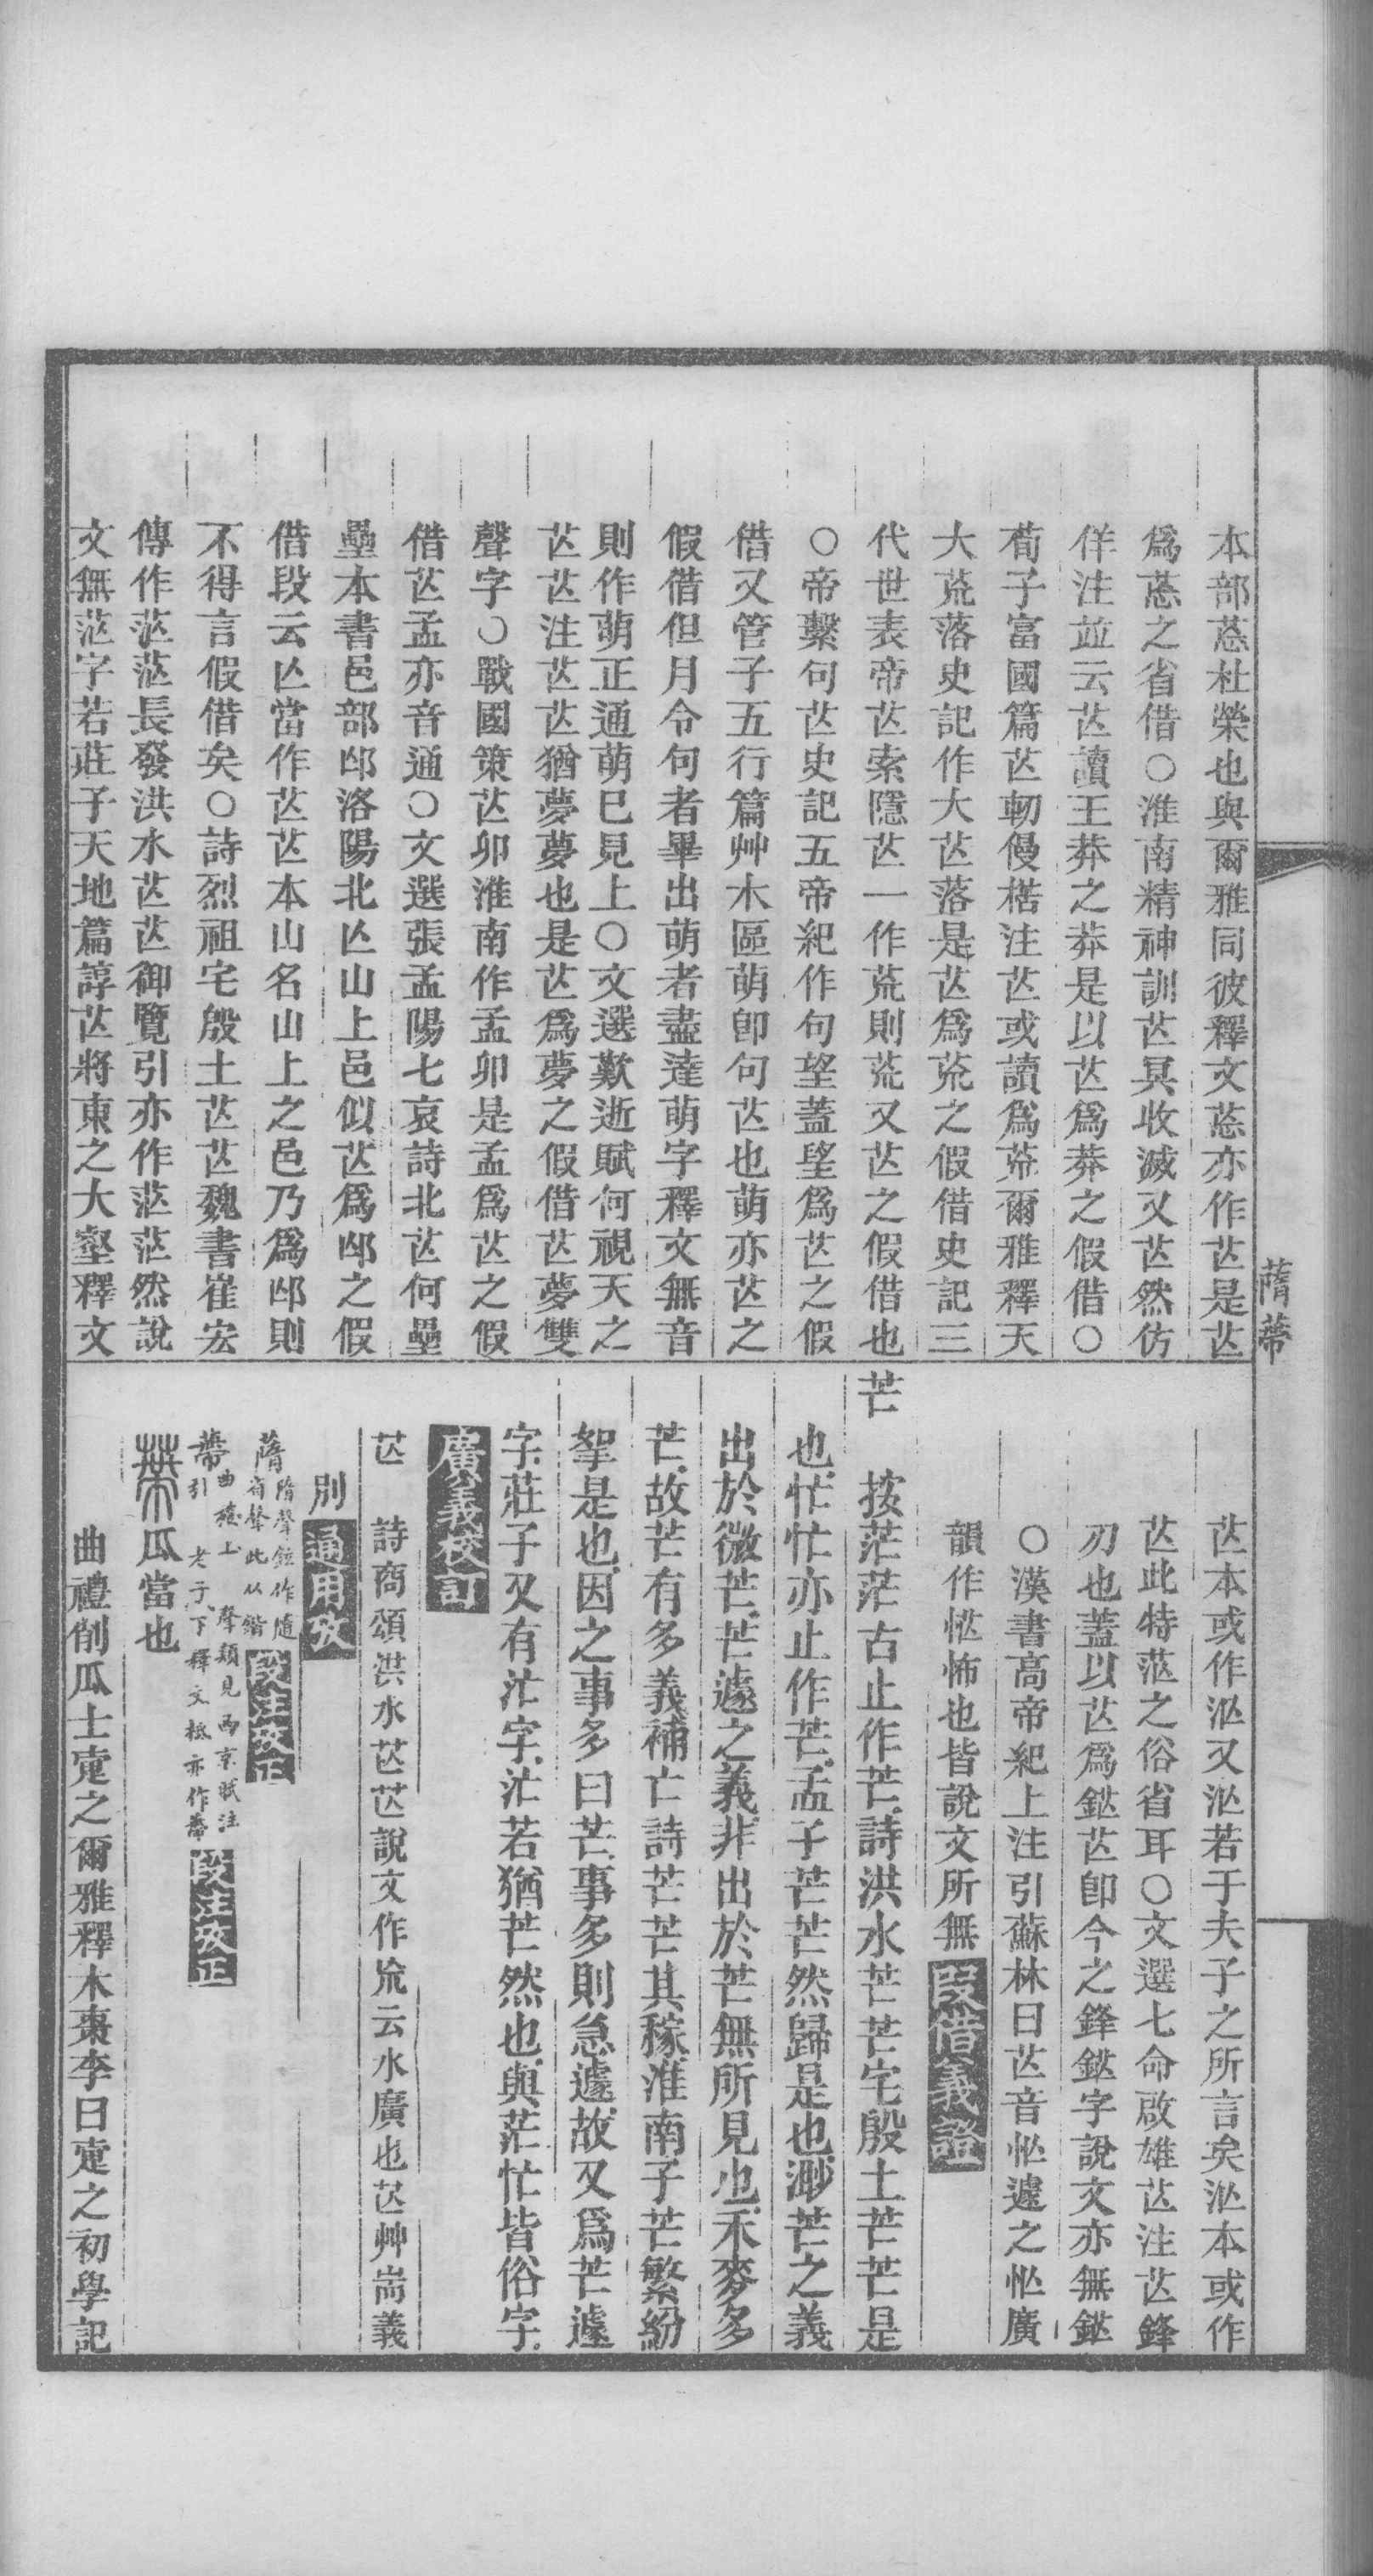 本部莣杜榮也與爾雅同彼釋文莣亦作芒是芒
爲莣之省借○淮南精神訓芒冥收滅又芒然仿
佯注竝云芒讀王莽之莽是以芒爲莽之假借○
荀子富國篇芒軔僈楛注芒或讀爲荒爾雅釋天
大荒落史記作大芒落是芒爲荒之假借史記三
代世表帝芒索隱芒一作荒則荒又芒之假借也
○帝繫句芒史記五帝紀作句望蓋望爲芒之假
借又管子五行篇艸木區萌卽句芒也萌亦芒之
假借但月令句者畢出萌者盡達萌字釋文無音
則作萌正通萌已見上○文選歎逝賦何視天之
芒芒注芒芒猶夢夢也是芒爲夢之假借芒夢雙
聲字○戰國策芒卯淮南作孟卯是孟爲芒之假
借芒孟亦音通○文選張孟陽七哀詩北芒何壘
壘本書邑部邙洛陽北亾山上邑似芒爲邙之假
借段云亾當作芒芒本山名山上之邑乃爲邙則
不得言假借矣○詩烈祖宅殷土芒芒魏書崔宏
傳作茫茫長發洪水芒芒御覽引亦作茫茫然說
文無茫字若莊子天地篇諄芒將東之大壑釋文
芒本或作汒又汒若于夫子之所言矣汒本或作
芒此特茫之俗省耳○文選七命啟雄芒注芒鋒
刃也蓋以芒爲鋩芒卽今之鋒鋩字說文亦無鋩
○漢書高帝紀上注引蘇林曰芒音忙遽之忙廣
韻作恾怖也皆說文所無 叚借義證
芒 按茫茫古止作芒詩洪水芒芒宅殷土芒芒是
也忙忙亦止作芒孟子芒芒然歸是也渺芒之義
出於微芒芒遽之義非出於芒無所見也禾麥多
芒故芒有多義補亡詩芒芒其稼淮南子芒繁紛
挐是也因之事多曰芒事多則急遽故又爲芒遽
字莊子又有茫字茫若猶芒然也與茫忙皆俗字
廣義校訂
芒 詩商頌洪水芒芒說文作㡃云水廣也芒艸耑義
別 通用攷
蓨 隋聲鉉作隨省聲此从鍇 段注攷正
蔕 曲禮上 聲類見西京賦注引 老子下釋文柢亦作蔕 段注攷正
蔕 瓜當也
曲禮削瓜士疐之爾雅釋木棗李曰疐之初學記